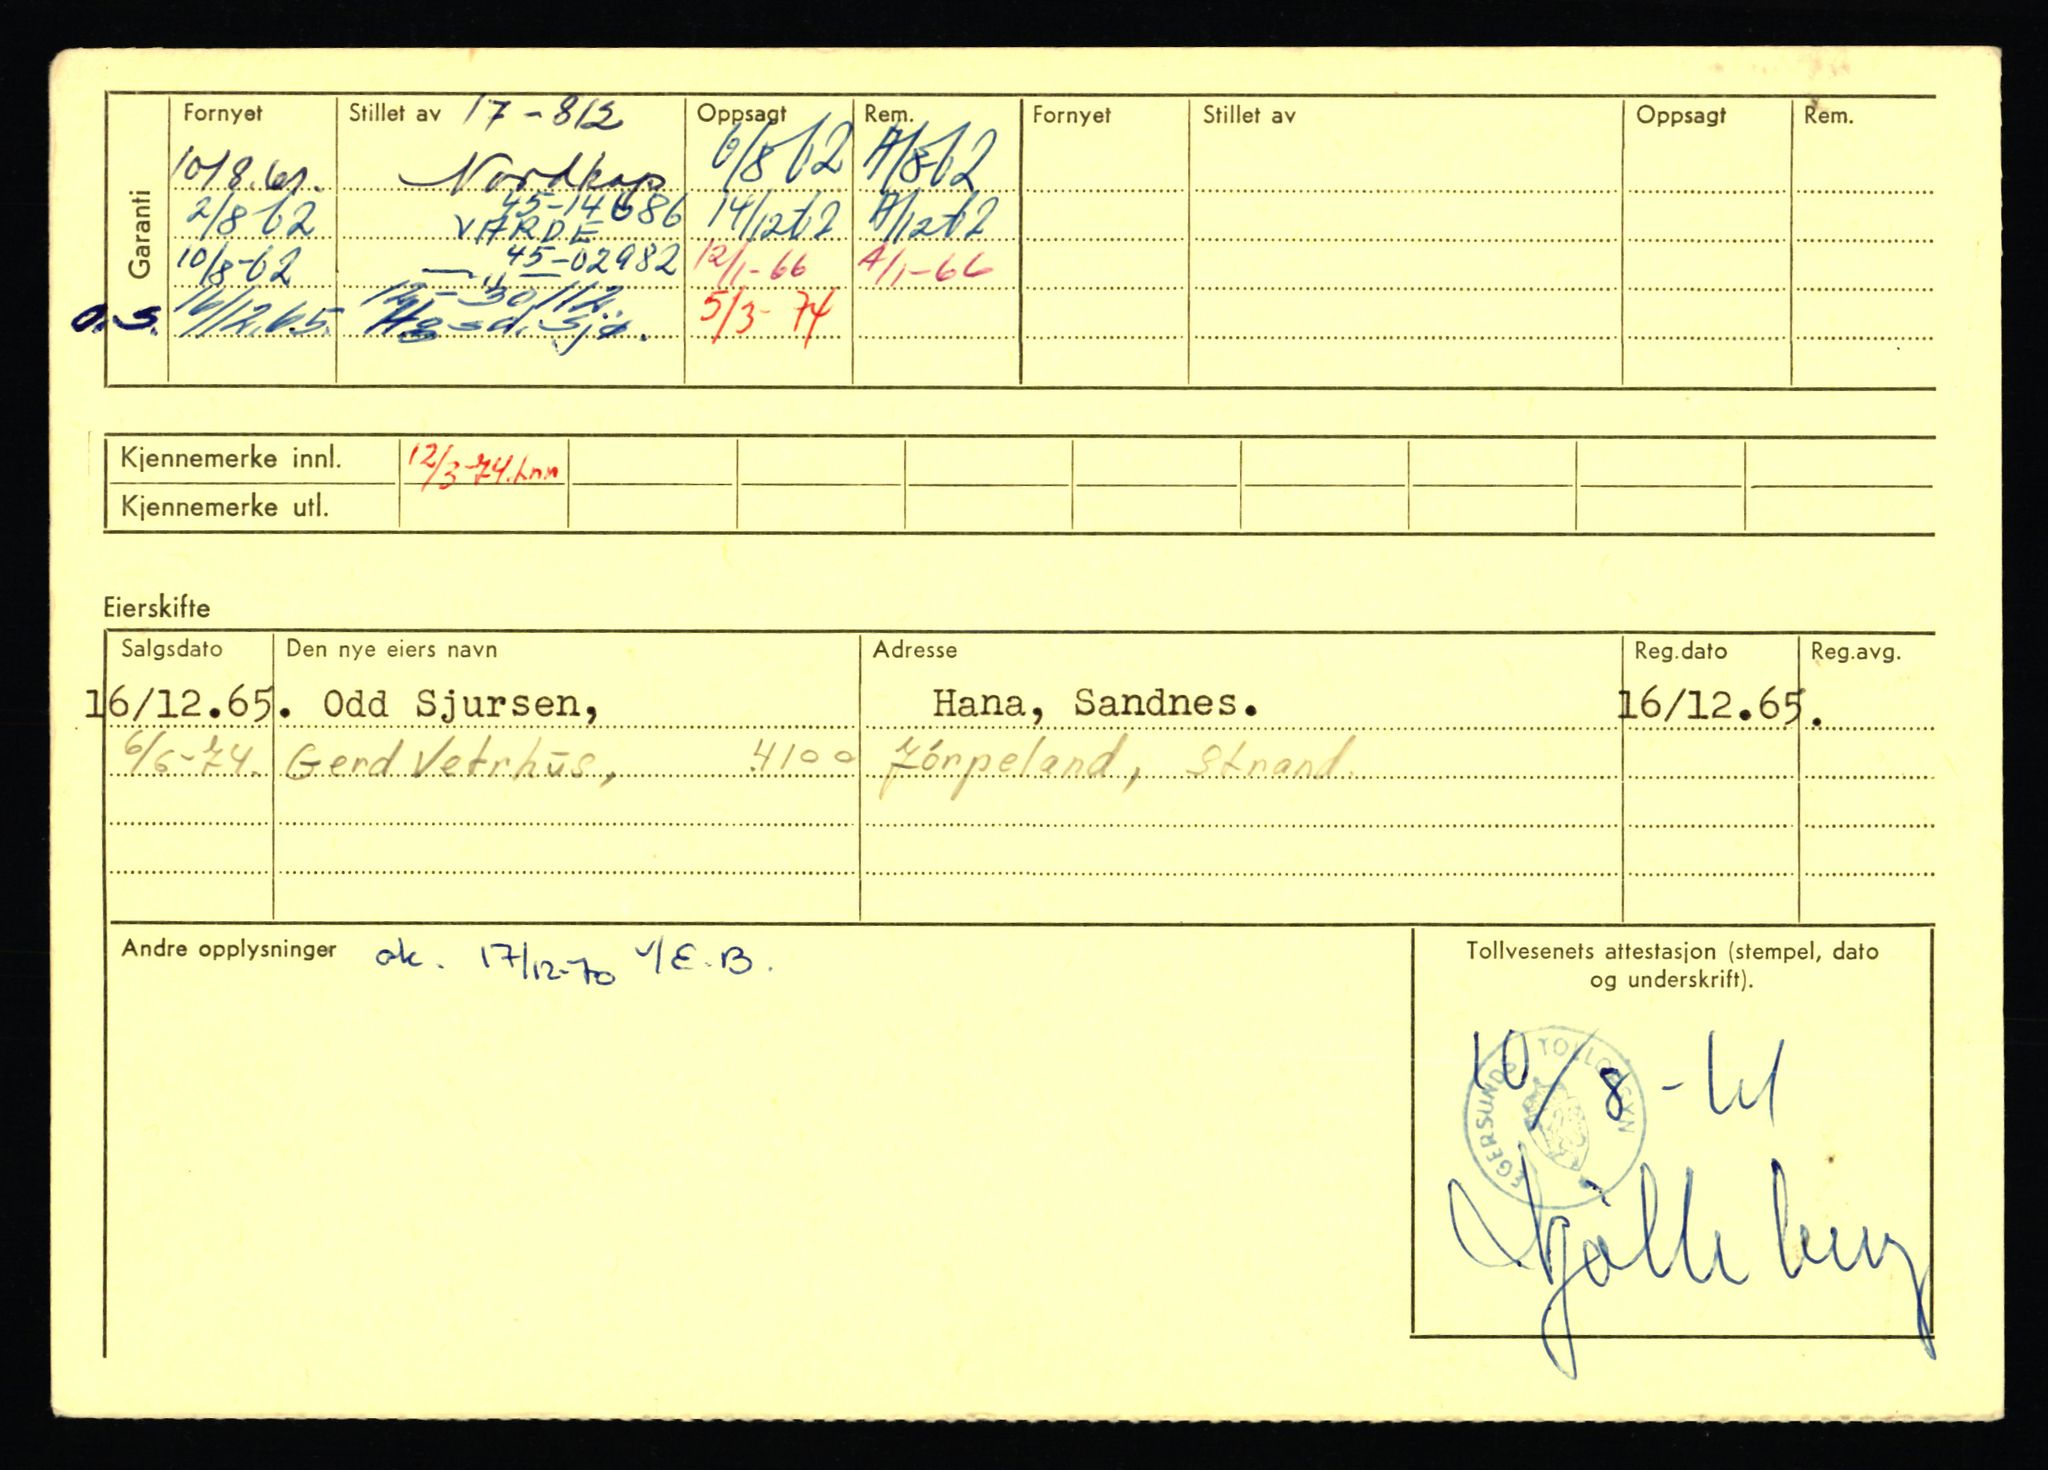 Fornyet Stillet av 17-812 Oppsagt Rem. Fornyet Stillet av Oppsagt Rem.
Garanti
10/8.61. Nordkap 6/8 62 A/8 62
2/8 62 45-14686 VARDE 14/12 62 A/12 62
10/8-62 — " — 45-02982 12/1-66 A/1-66
a.s. 16/12.65. 12-30112. Hgsd. Sjø. 5/3-74
Kjennemerke innl. 12/3-74.
Kjennemerke utl.
Eierskifte
Salgsdato Den nye eiers navn Adresse Reg.dato Reg.avg.
16/12.65. Odd Sjursen, Hana, Sandnes. 16/12.65.
6/6-74. Gerd Vetrhus, 4100 Jörpeland, Strand.
Andre opplysninger ok. 17/12-70 v/E.B.
Tollvesenets attestasjon (stempel, dato
og underskrift).
EGERSUNDS TOLLOPPSYN
10/8-61